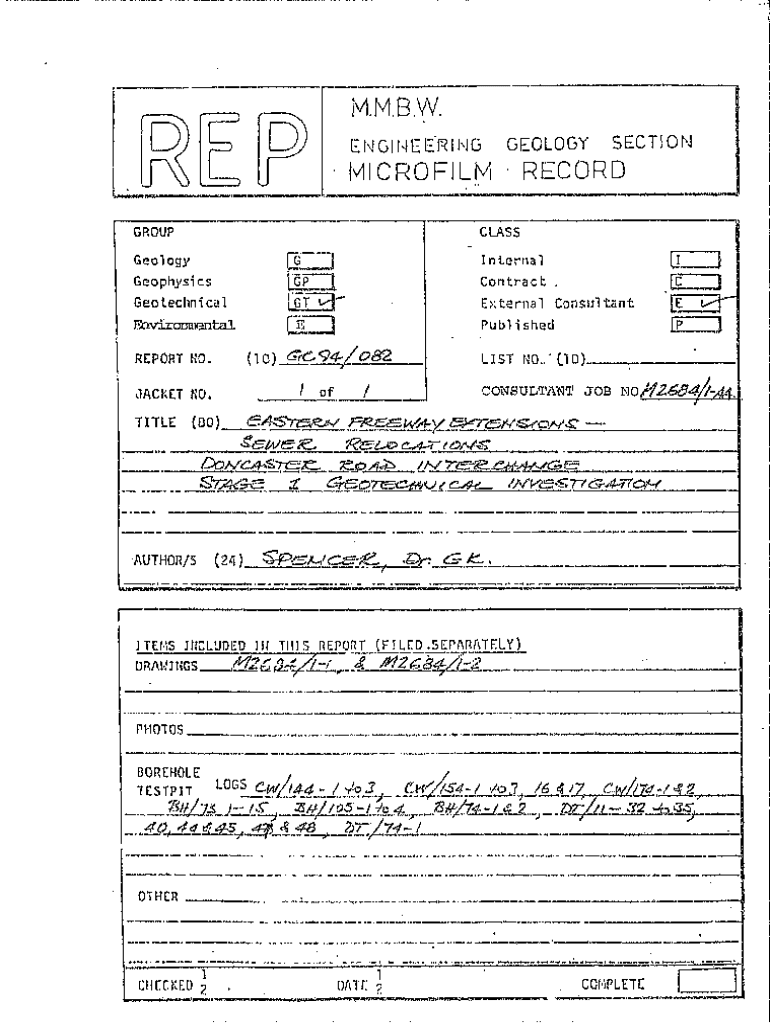 REP
M.M.B.W.
ENGINEERING GEOLOGY SECTION
MICROFILM RECORD
GROUP
Geology G
Geophysics GP
Geotechnical GT ✓
Environmental E
REPORT NO. (10) GC94/082
JACKET NO. 1 of 1
CLASS
Internal I
Contract C
External Consultant E ✓
Published P
LIST NO. (10)
CONSULTANT JOB NO M2684/1-AA
TITLE (80) EASTERN FREEWAY EXTENSIONS —
SEWER RELOCATIONS
DONCASTER ROAD INTERCHANGE
STAGE 1 GEOTECHNICAL INVESTIGATION
AUTHOR/S (24) SPENCER, Dr. G K.
ITEMS INCLUDED IN THIS REPORT (FILED SEPARATELY)
DRAWINGS M2684/1-1, & M2684/1-2
PHOTOS
BOREHOLE
TESTPIT LOGS CW/144-1 to 3, CW/154-1 to 3, 16 & 17, CW/174-1 & 2,
BH/73 1-15, BH/105-1 to 4, BH/74-1 & 2, DT/11-32 to 35,
40, 44 & 45, & 48, DT/74-1
OTHER
CHECKED 1 2
DATE 1 2
COMPLETE